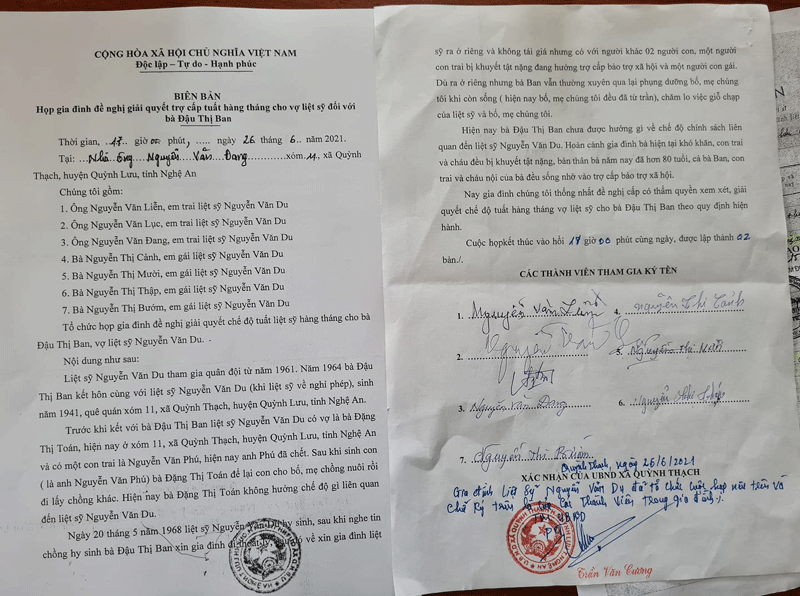 CỘNG HÒA XÃ HỘI CHỦ NGHĨA VIỆT NAM
Độc lập – Tự do - Hạnh phúc
BIÊN BẢN
Họp gia đình đề nghị giải quyết trợ cấp tuất hàng tháng cho vợ liệt sỹ đối với
bà Đậu Thị Ban
Thời gian, ..17.. giờ 00 phút, ..... ngày 26 6.. năm 2021.
Tại: ...Nhà ông...Nguyễn Văn Đang...........xóm 11, xã Quỳnh
Thạch, huyện Quỳnh Lưu, tỉnh Nghệ An
Chúng tôi gồm:
1. Ông Nguyễn Văn Liễn, em trai liệt sỹ Nguyễn Văn Du
2. Ông Nguyễn Văn Lục, em trai liệt sỹ Nguyễn Văn Du
3. Ông Nguyễn Văn Đang, em trai liệt sỹ Nguyễn Văn Du
4. Bà Nguyễn Thị Cảnh, em gái liệt sỹ Nguyễn Văn Du
5. Bà Nguyễn Thị Mười, em gái liệt sỹ Nguyễn Văn Du
6. Bà Nguyễn Thị Thập, em gái liệt sỹ Nguyễn Văn Du
7. Bà Nguyễn Thị Bướm, em gái liệt sỹ Nguyễn Văn Du
Tổ chức họp gia đình đề nghị giải quyết chế độ tuất liệt sỹ hàng tháng cho bà
Đậu Thị Ban, vợ liệt sỹ Nguyễn Văn Du. .
Nội dung như sau:
Liệt sỹ Nguyễn Văn Du tham gia quân đội từ năm 1961. Năm 1964 bà Đậu
Thị Ban kết hôn cùng với liệt sỹ Nguyễn Văn Du (khi liệt sỹ về nghỉ phép), sinh
năm 1941, quê quán xóm 11, xã Quỳnh Thạch, huyện Quỳnh Lưu, tỉnh Nghệ An.
Trước khi kết với bà Đậu Thị Ban liệt sỹ Nguyễn Văn Du có vợ là bà Đặng
Thị Toán, hiện nay ở xóm 11, xã Quỳnh Thạch, huyện Quỳnh Lưu, tỉnh Nghệ An
và có một con trai là Nguyễn Văn Phú, hiện nay anh Phú đã chết. Sau khi sinh con
( là anh Nguyễn Văn Phú) bà Đặng Thị Toán để lại con cho bố, mẹ chồng nuôi rồi
đi lấy chồng khác. Hiện nay bà Đặng Thị Toán không hưởng chế độ gì liên quan
đến liệt sỹ Nguyễn Văn Du.
Ngày 20 tháng 5 năm 1968 liệt sỹ Nguyễn hy sinh, sau khi nghe tin
chồng hy sinh bà Đậu Thị Ban xin gia đình đi thoát ly, về xin gia đình liệt
sỹ ra ở riêng và không tái giá nhưng có với người khác 02 người con, một người
con trai bị khuyết tật nặng đang hưởng trợ cấp bảo trợ xã hội và một người con gái.
Dù ra ở riêng nhưng bà Ban vẫn thường xuyên qua lại phụng dưỡng bố, mẹ chúng
tôi khi còn sống ( hiện nay bố, mẹ chúng tôi đều đã từ trần), chăm lo việc giỗ chạp
của liệt sỹ và bố, mẹ chúng tôi.
Hiện nay bà Đậu Thị Ban chưa được hưởng gì về chế độ chính sách liên
quan đến liệt sỹ Nguyễn Văn Du. Hoàn cảnh gia đình bà hiện tại khó khăn, con trai
và cháu đều bị khuyết tật, bản thân bà năm nay đã hơn 80 tuổi, cả bà Ban, con
trai và cháu nội của bà đều sống nhờ vào trợ cấp bảo trợ xã hội.
Nay gia đình chúng tôi thống nhất đề nghị cấp có thẩm quyền xem xét, giải
quyết chế độ tuất hàng tháng vợ liệt sỹ cho bà Đậu Thị Ban theo quy định hiện
hành.
Cuộc họpkết thúc vào hồi 17 giờ 00 phút cùng ngày, được lập thành 02
bản./.
CÁC THÀNH VIÊN THAM GIA KÝ TÊN
1. Nguyễn Văn Liễn 4. Nguyễn Thị Cảnh
2. Nguyễn 5. Nguyễn Thị Mười
3. Nguyễn Văn Đang 6. Nguyễn Thị Thập
7. Nguyễn Thị Bướm
Quỳnh Thạch, ngày 26/6/2021
XÁC NHẬN CỦA UBND XÃ QUỲNH THẠCH
Gia đình Liệt Sỹ Nguyễn Văn Du đã tổ chức cuộc họp nói trên và
chữ ký trên là của các Thành Viên Trong gia đình./.
Trần Văn Cương